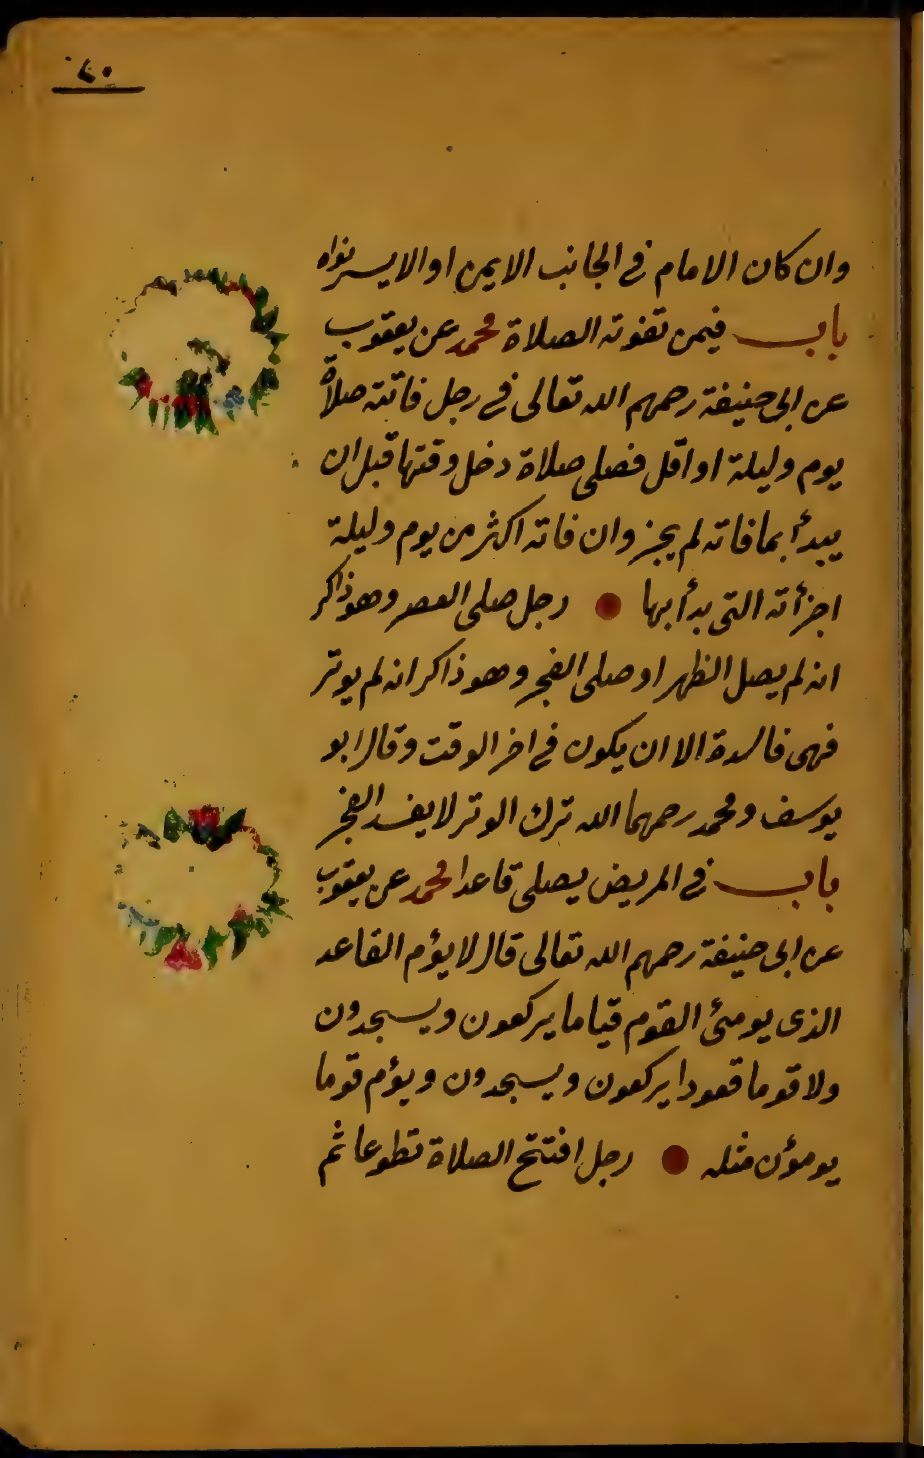 ٤٠
وان كان الامام في الجانب الايمن او الايسر نواه
باب فيمن تفوته الصلاة محمد عن يعقوب
عن ابى حنيفة رحمهم الله تعالى في رجل فاتته صلاة
يوم وليلة او اقل فصلى صلاة دخل وقتها قبل ان
يبدأ بما فاته لم يجز وان فاته اكثر من يوم وليلة
اجزأته التى بدأ بها رجل صلى العصر وهو ذاكر
انه لم يصل الظهر او صلى الفجر وهو ذاكر انه لم يوتر
فهى فاسدة الا ان يكون في اخر الوقت وقال ابو
يوسف ومحمد رحمهما الله ترك الوتر لا يفسد الفجر
باب في المريض يصلى قاعدا محمد عن يعقوب
عن ابى حنيفة رحمهم الله تعالى قال لا يؤم القاعد
الذى يومئ القوم قياما يركعون ويسجدون
ولا قوما قعودا يركعون ويسجدون ويؤم قوما
يومؤن مثله رجل افتتح الصلاة تطوعا ثم